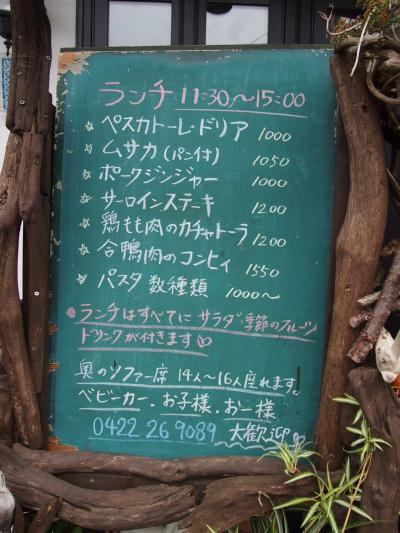 ランチ 11:30～15:00
☆ ペスカトーレ・ドリア 1000
☆ ムサカ(パン付) 1050
☆ ポークジンジャー 1000
☆ サーロインステーキ 1200
☆ 鶏もも肉のカチャトーラ 1200
☆ 合鴨肉のコンヒィ 1550
☆ パスタ 数種類 1000～
●ランチはすべてに サラダ・季節のフルーツ
ドリンクが付きます♡
奥のソファー席 14人～16人座れます。
ベビーカー、お子様、お一様
0422 26 9089 大歓迎